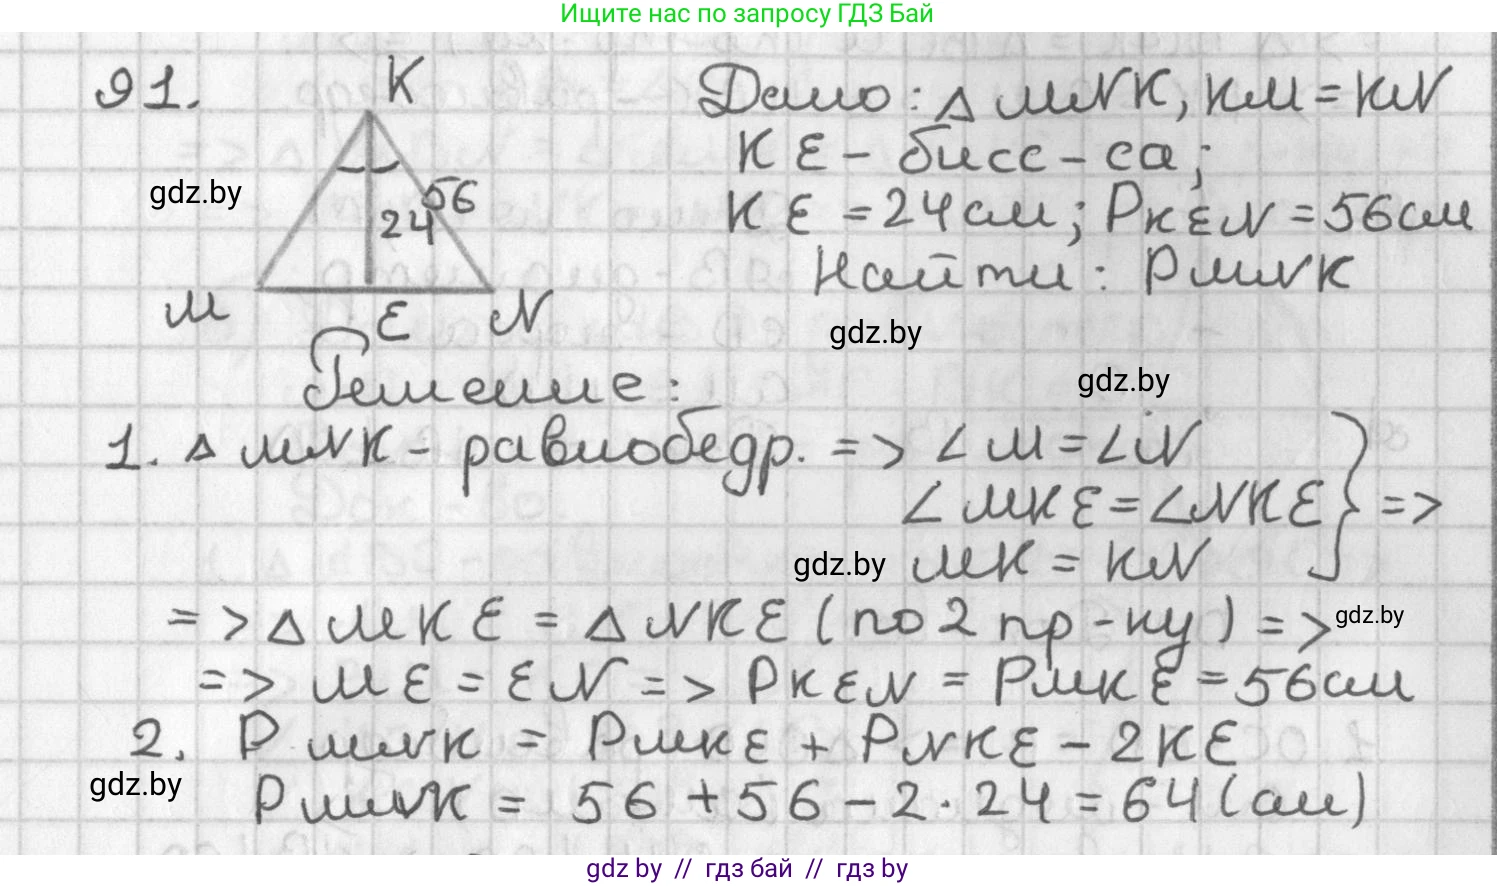 Ищите нас по запросу ГДЗ Бай
91.
K
Дано: △ MNK, KM = KN
KE - бисс-са;
gdz.by
56
24
KE = 24см; PKEN = 56см
Найти: PMNK
M
E
N
gdz.by
Решение:
gdz.by
1. △ MNK - равнобедр. => ∠M = ∠N
∠MKE = ∠NKE } =>
gdz.by
MK = KN
=> △ MKE = △ NKE (по 2 пр-ку) =>
gdz.by
=> ME = EN => PKEN = PMKE = 56см
2. PMNK = PMKE + PNKE - 2KE
gdz.by
PMNK = 56 + 56 - 2·24 = 64 (см)
gdz.by // гдз бай // гдз by